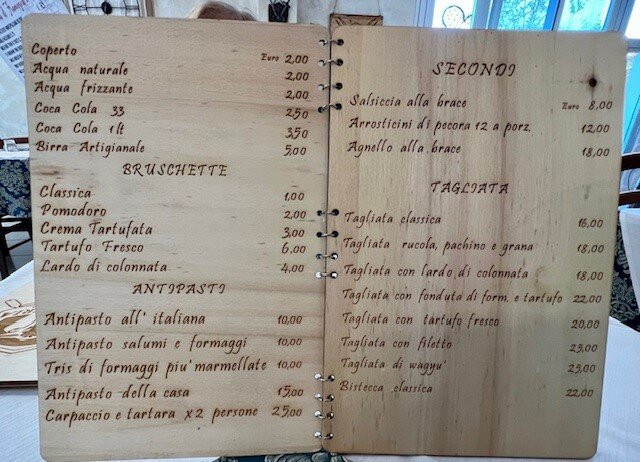 Coperto Euro 2,00
Acqua naturale 2,00
Acqua frizzante 2,00
Coca Cola 33 2,50
Coca Cola 1lt 3,50
Birra Artigianale 5,00
BRUSCHETTE
Classica 1,00
Pomodoro 2,00
Crema Tartufata 3,00
Tartufo Fresco 6,00
Lardo di colonnata 4,00
ANTIPASTI
Antipasto all' italiana 10,00
Antipasto salumi e formaggi 10,00
Tris di formaggi piu' marmellate 10,00
Antipasto della casa 15,00
Carpaccio e tartara x 2 persone 25,00
SECONDI
Salsiccia alla brace Euro 8,00
Arrosticini di pecora 12 a porz. 12,00
Agnello alla brace 18,00
TAGLIATA
Tagliata classica 16,00
Tagliata rucola, pachino e grana 18,00
Tagliata con lardo di colonnata 18,00
Tagliata con fonduta di form. e tartufo 22,00
Tagliata con tartufo fresco 20,00
Tagliata con filetto 23,00
Tagliata di wagyu' 23,00
Bistecca classica 22,00